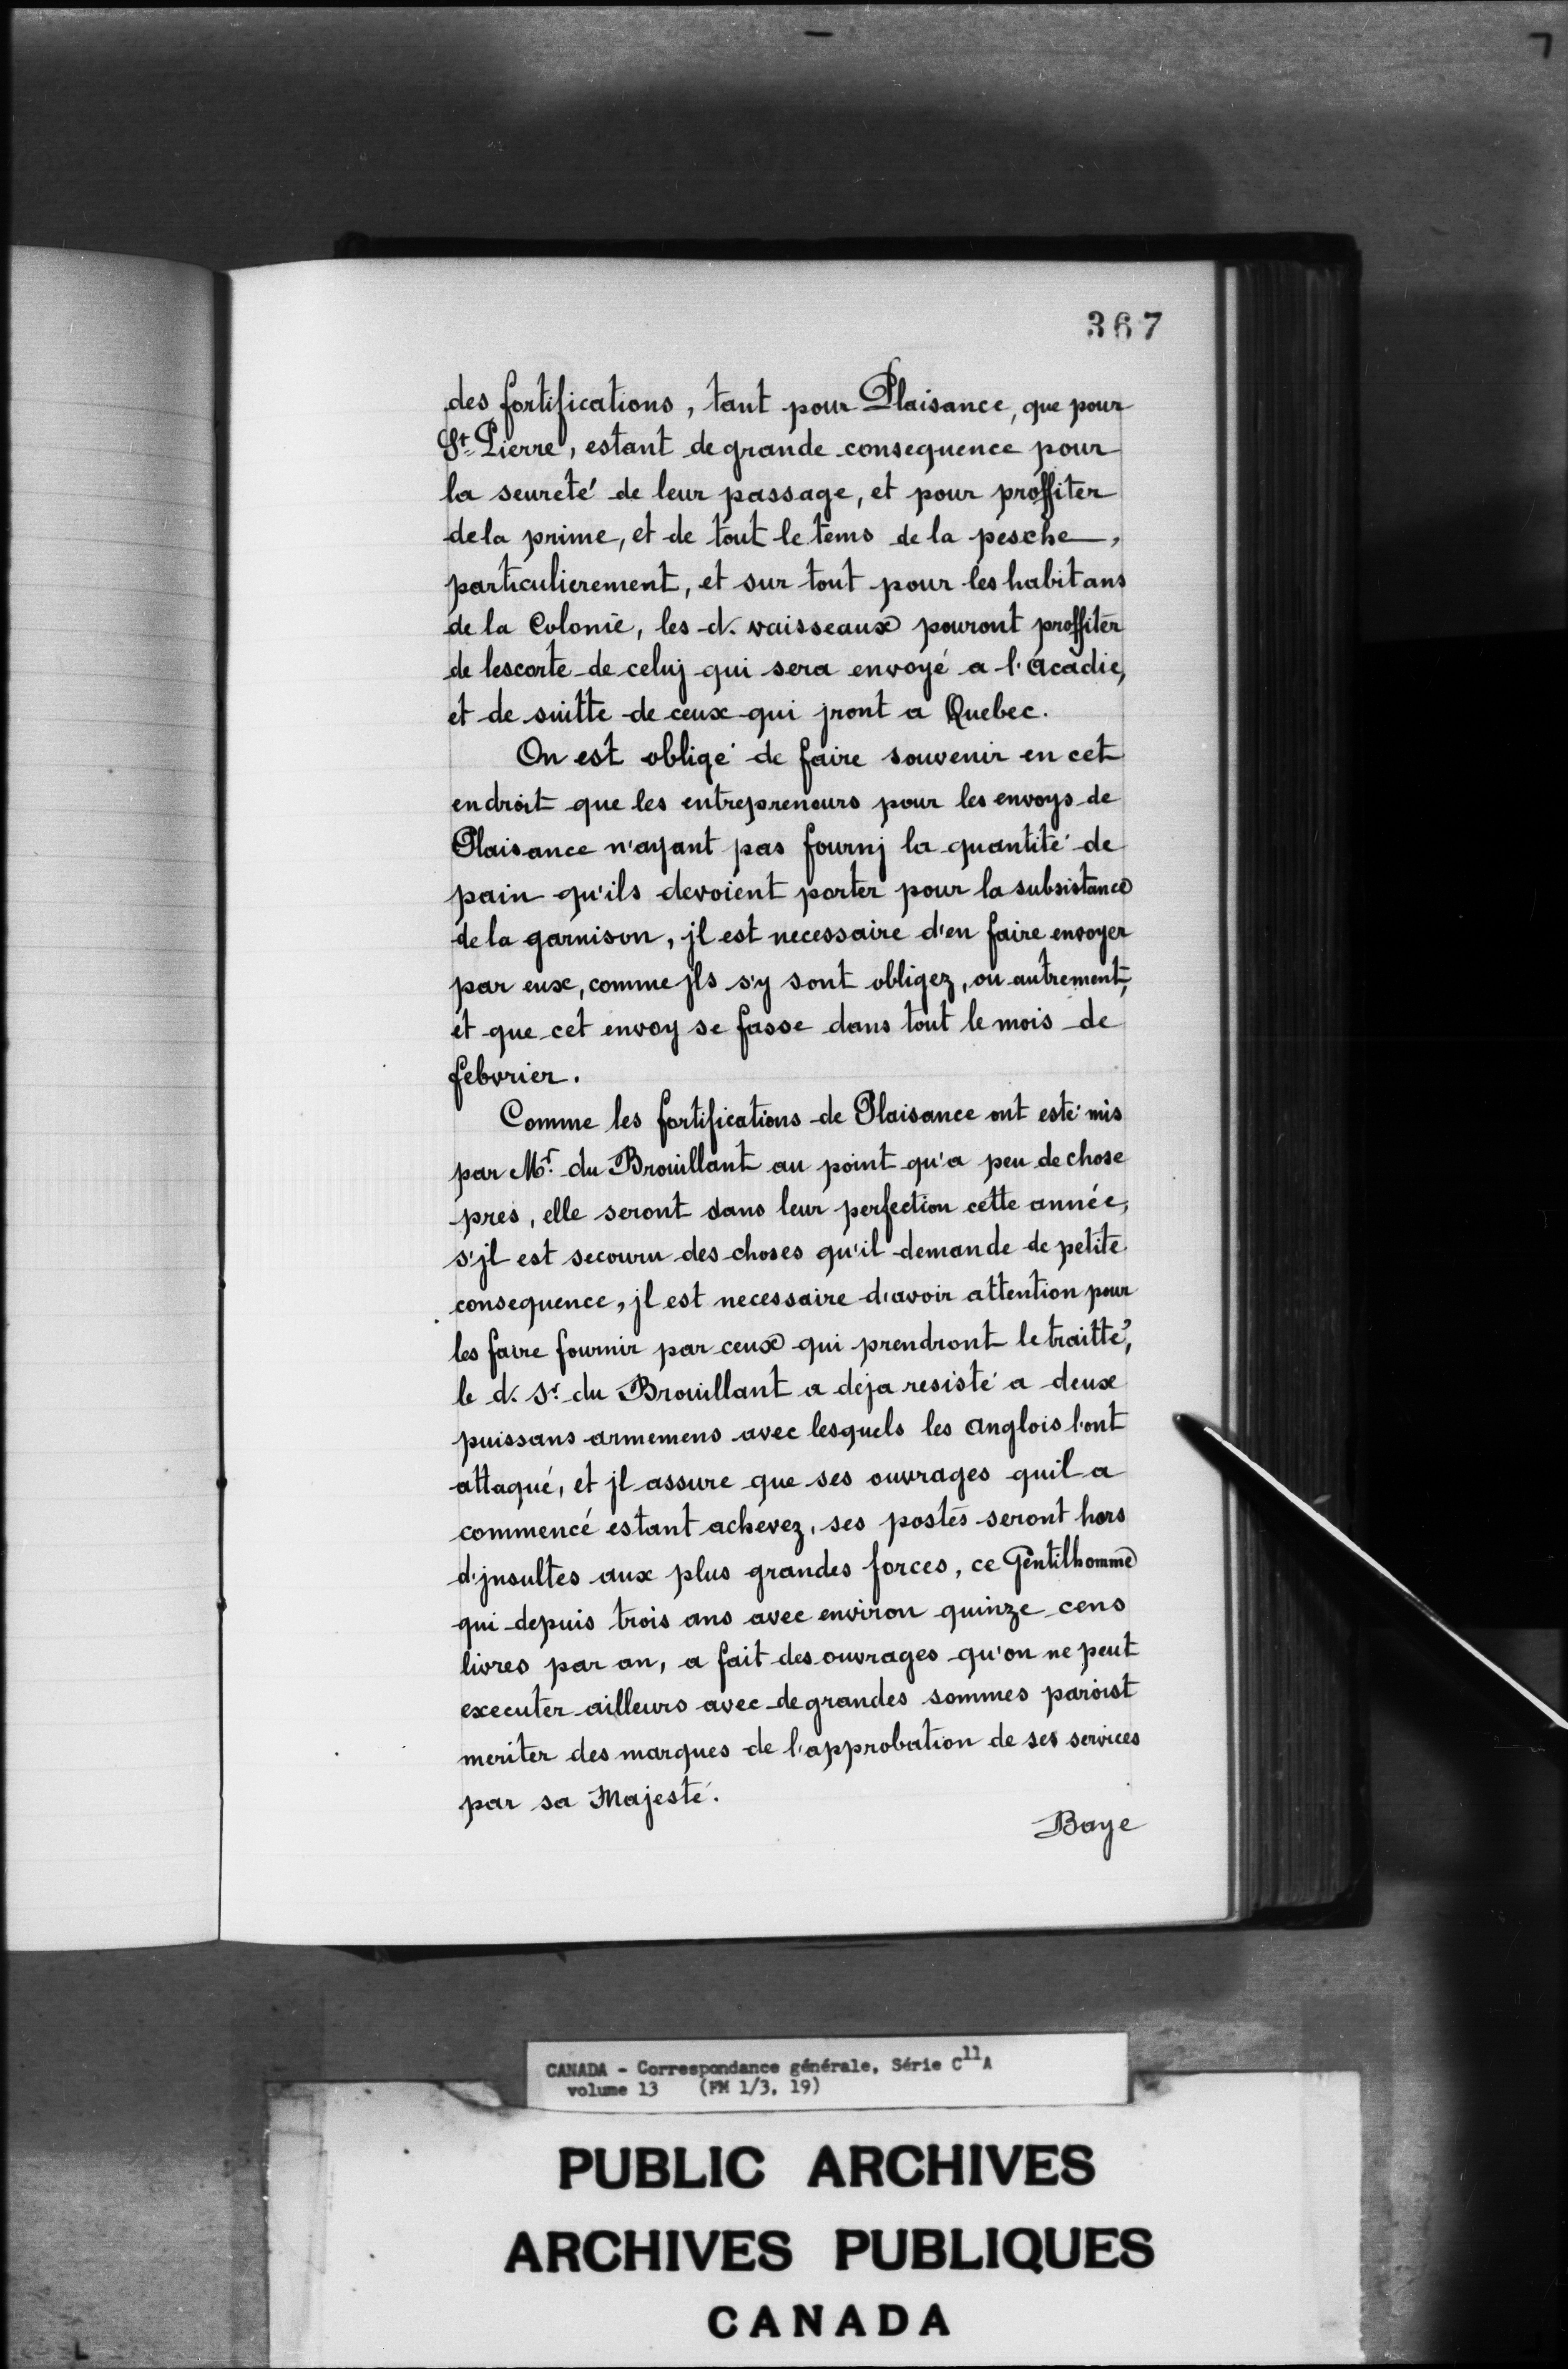 367
des fortifications, tant pour Plaisance, que pour
St. Pierre, estant de grande consequence pour
la seureté de leur passage, et pour proffiter
de la prime, et de tout le tems de la pesche,
particulierement, et sur tout pour les habitans
de la Colonie, les d. vaisseaux pouront proffiter
de lescorte de celuj qui sera envoyé a l'Acadie,
et de suitte de ceux qui jront a Quebec.
On est obligé de faire souvenir en cet
endroit que les entrepreneurs pour les envoys de
Plaisance n'ayant pas fournj la quantité de
pain qu'ils devoient porter pour la subsistance
de la garnison, jl est necessaire d'en faire envoyer
par eux, comme jls s'y sont obligez, ou autrement,
et que cet envoy se fasse dans tout le mois de
febvrier.
Comme les fortifications de Plaisance ont esté mis
par Mr. du Brouillant au point qu'a peu de chose
pres, elle seront dans leur perfection cette année,
s'jl est secouru des choses qu'il demande de petite
consequence, jl est necessaire d'avoir attention pour
les faire fournir par ceux qui prendront le traitté,
le d. Sr. du Brouillant a deja resisté a deux
puissans armemens avec lesquels les anglois l'ont
attaqué, et jl assure que ses ouvrages quil a
commencé estant achevez, ses postes seront hors
d'jnsultes aux plus grandes forces, ce Gentilhomme
qui depuis trois ans avec environ quinze cens
livres par an, a fait des ouvrages qu'on ne peut
executer ailleurs avec de grandes sommes paroist
meriter des marques de l'approbation de ses services
par sa Majesté.
Baye
CANADA - Correspondance générale, Série C11A
volume 13 (FM 1/3, 19)
PUBLIC ARCHIVES
ARCHIVES PUBLIQUES
CANADA